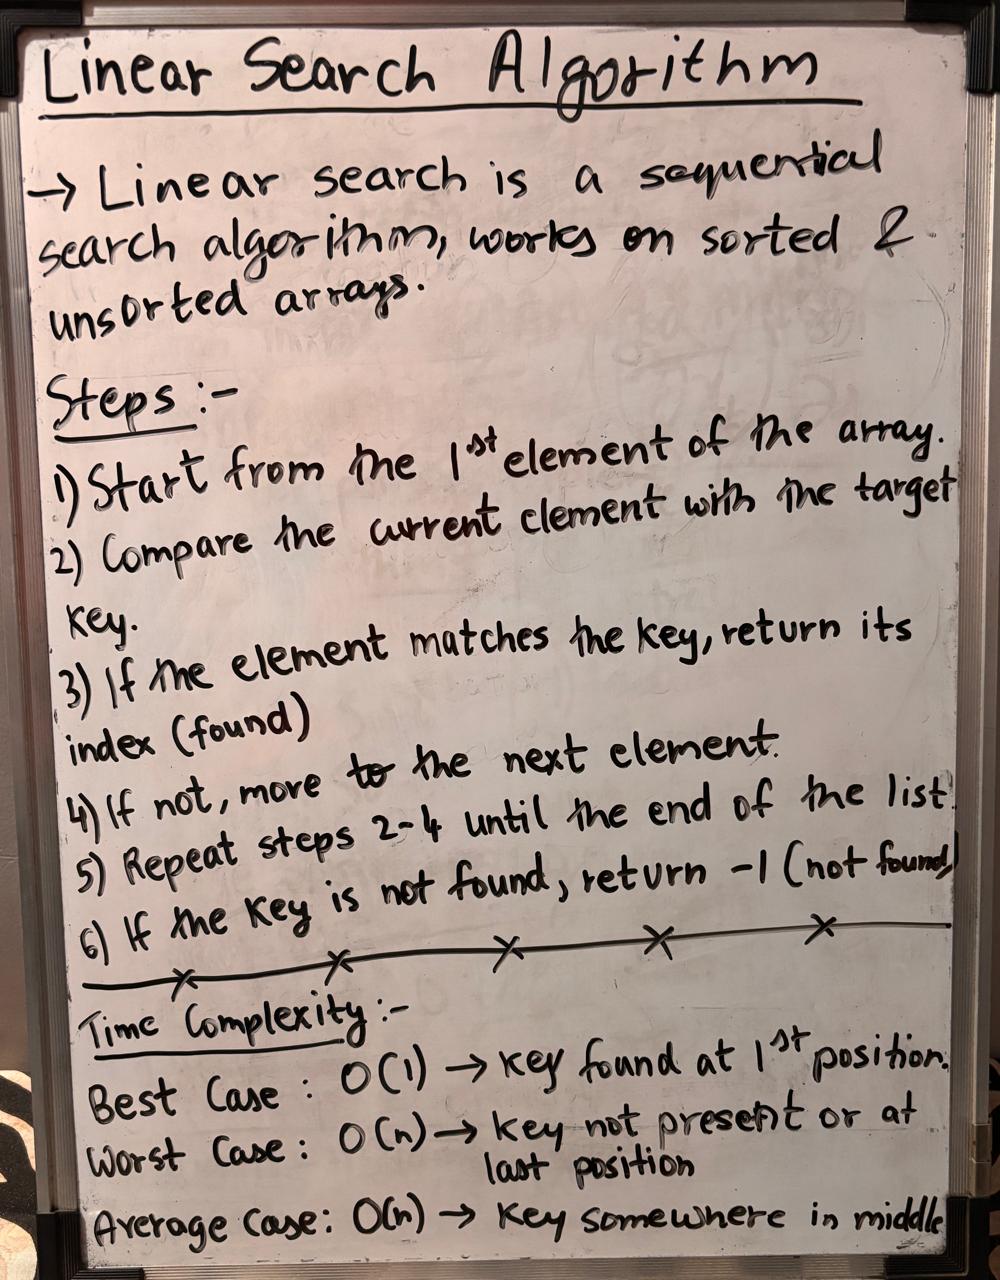 Linear Search Algorithm
→ Linear search is a sequential
search algorithm, works on sorted &
unsorted arrays.
Steps :-
1) Start from the 1st element of the array.
2) Compare the current element with the target
key.
3) If the element matches the key, return its
index (found)
4) If not, more to the next element.
5) Repeat steps 2-4 until the end of the list.
6) If the key is not found, return -1 (not found)
Time Complexity :-
Best Case : O(1) → key found at 1st position.
Worst Case : O(n) → key not present or at
last position
Average Case : O(n) → key somewhere in middle